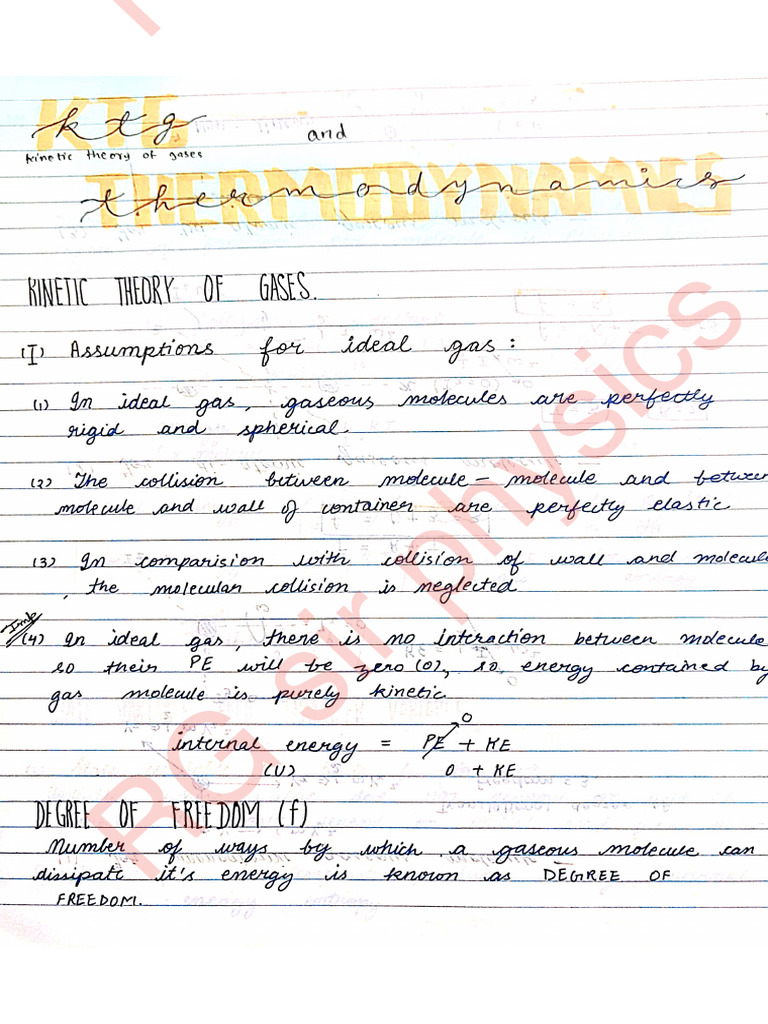 KTG
ktg and
kinetic theory of gases
THERMODYNAMICS
thermodynamics
KINETIC THEORY OF GASES.
(I) Assumptions for ideal gas :
(1) In ideal gas, gaseous molecules are perfectly
rigid and spherical.
(2) The collision between molecule - molecule and between
molecule and wall of container are perfectly elastic
(3) In comparision with collision of wall and molecule
, the molecular collision is neglected
Imp (4) In ideal gas, there is no intraction between molecule
so their PE will be zero (0), so energy contained by
gas molecule is purely kinetic
0
internal energy = PE + KE
(U) 0 + KE
DEGREE OF FREEDOM (f)
Number of ways by which a gaseous molecule can
dissipate it's energy is known as DEGREE OF
FREEDOM.
RG sir physics